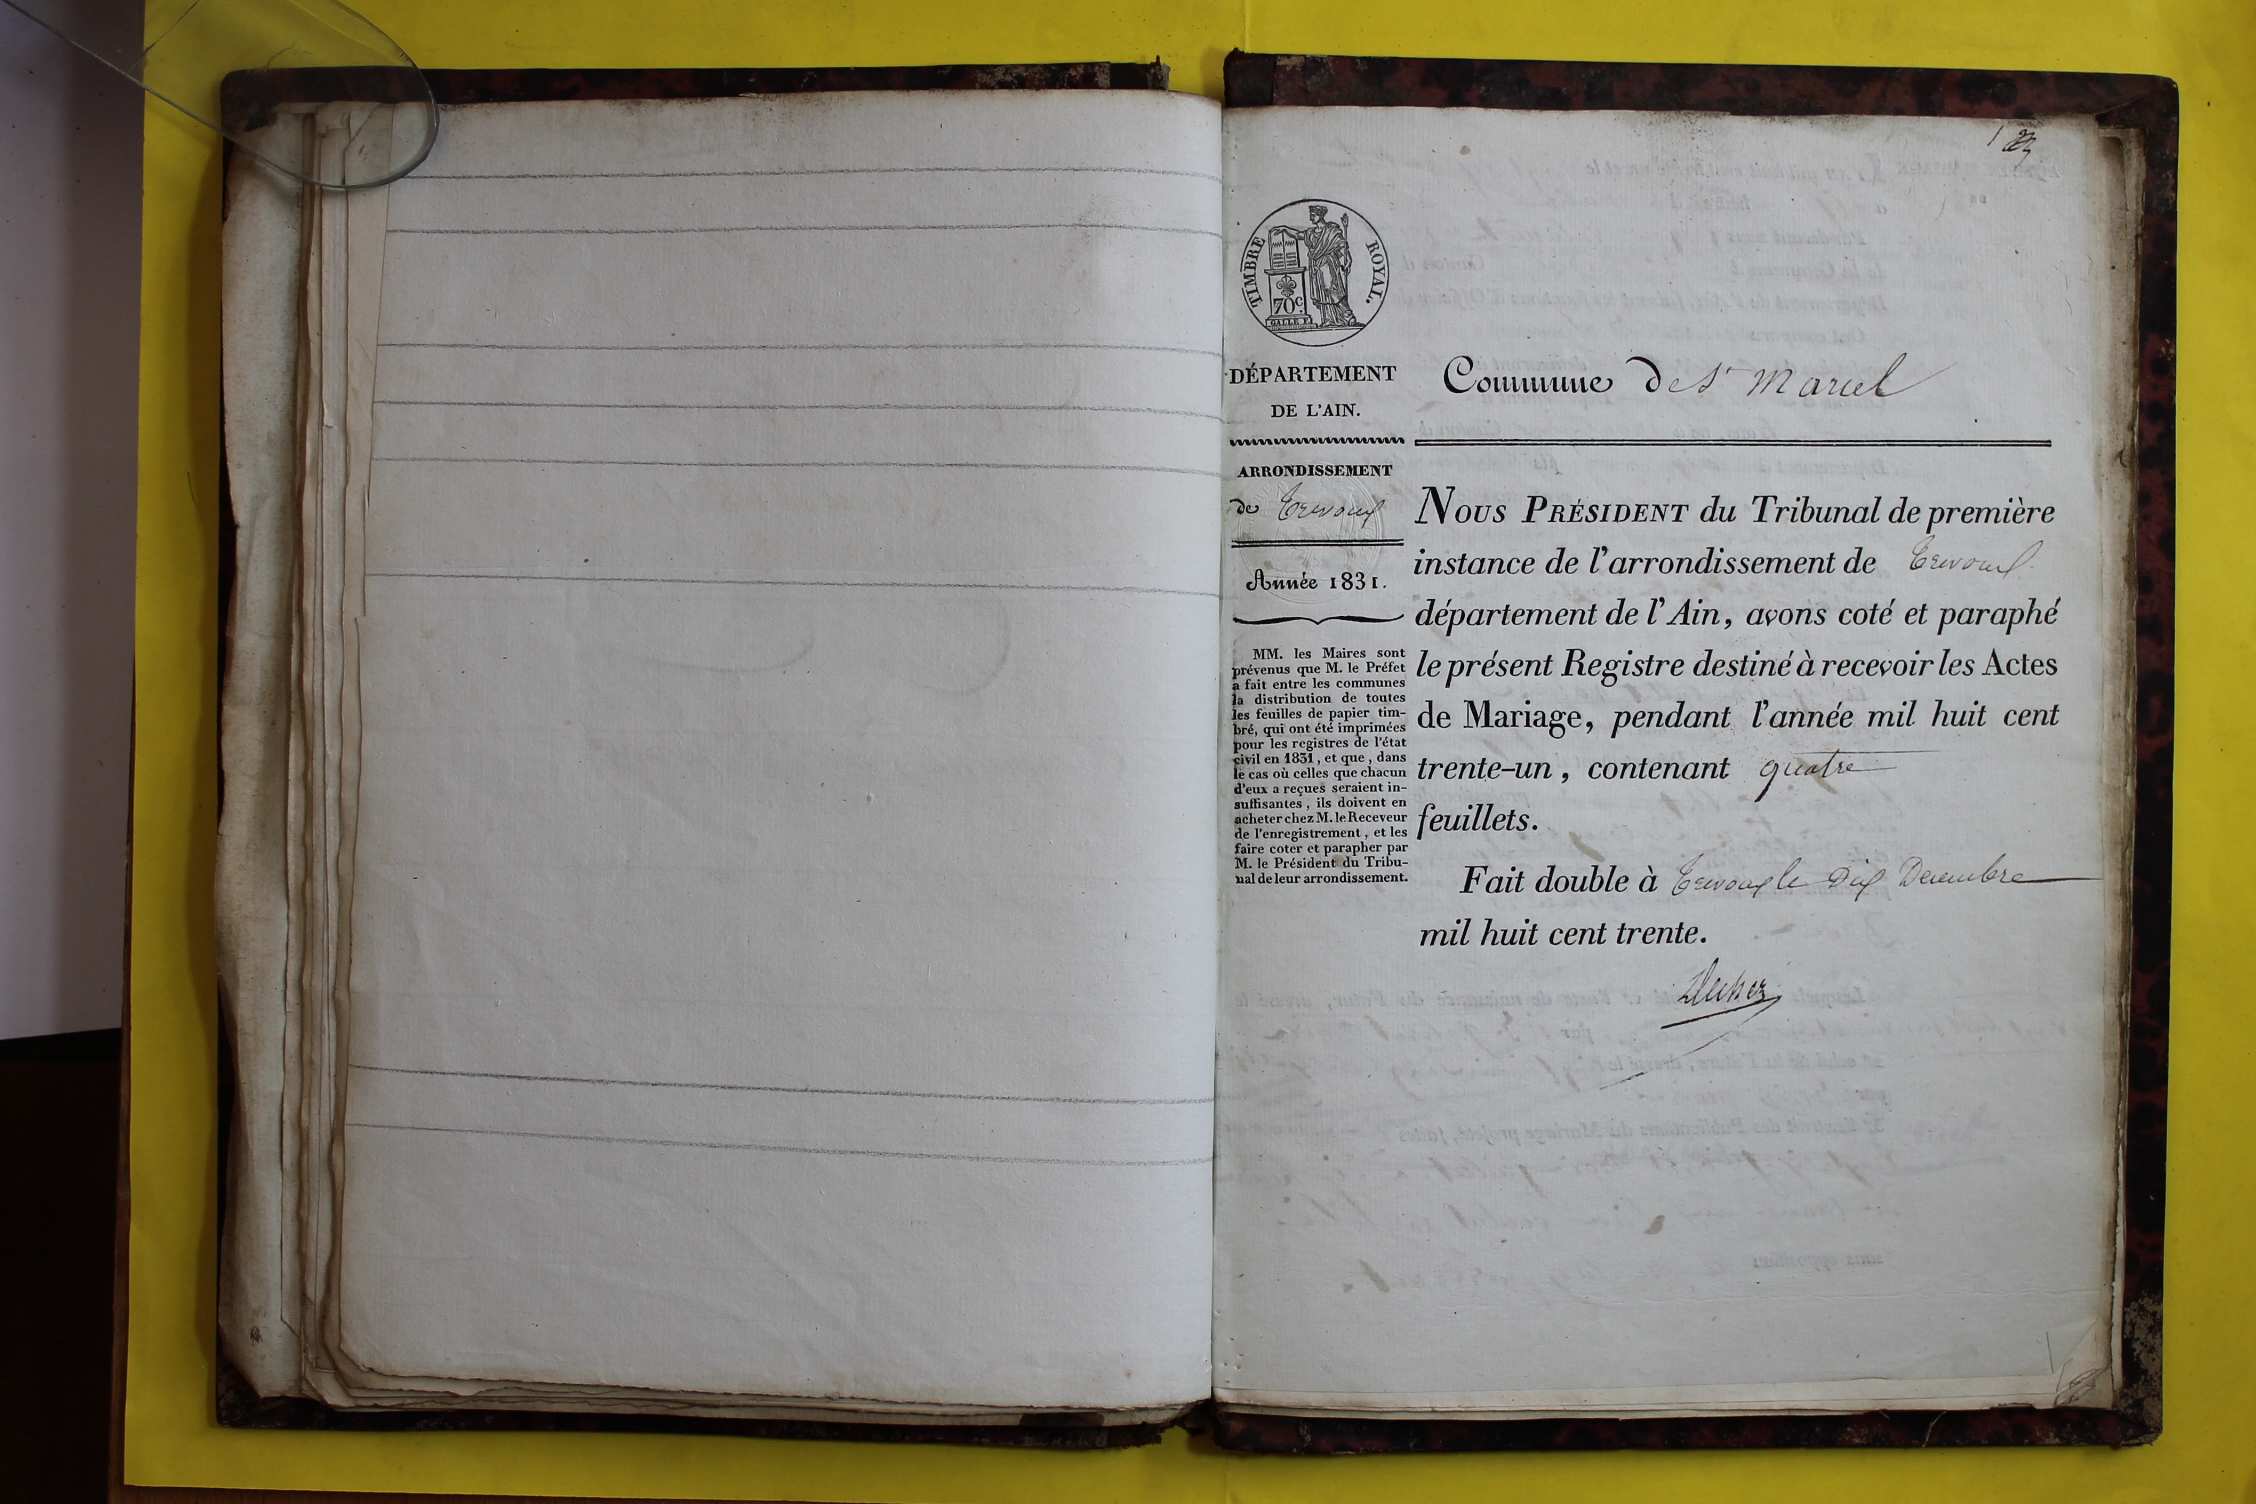 1
TIMBRE ROYAL.
70c.
DÉPARTEMENT
DE L'AIN.
ARRONDISSEMENT
de Trevoux
Année 1831.
MM. les Maires sont
prévenus que M. le Préfet
a fait entre les communes
la distribution de toutes
les feuilles de papier tim-
bré, qui ont été imprimées
pour les registres de l'état
civil en 1831, et que, dans
le cas où celles que chacun
d'eux a reçues seraient in-
suffisantes, ils doivent en
acheter chez M. le Receveur
de l'enregistrement, et les
faire coter et parapher par
M. le Président du Tribu-
nal de leur arrondissement.
Commune de St Marcel
NOUS PRÉSIDENT du Tribunal de première
instance de l'arrondissement de Trevoux
département de l'Ain, avons coté et paraphé
le présent Registre destiné à recevoir les Actes
de Mariage, pendant l'année mil huit cent
trente-un, contenant quatre
feuillets.
Fait double à Trevoux le Dix Decembre
mil huit cent trente.